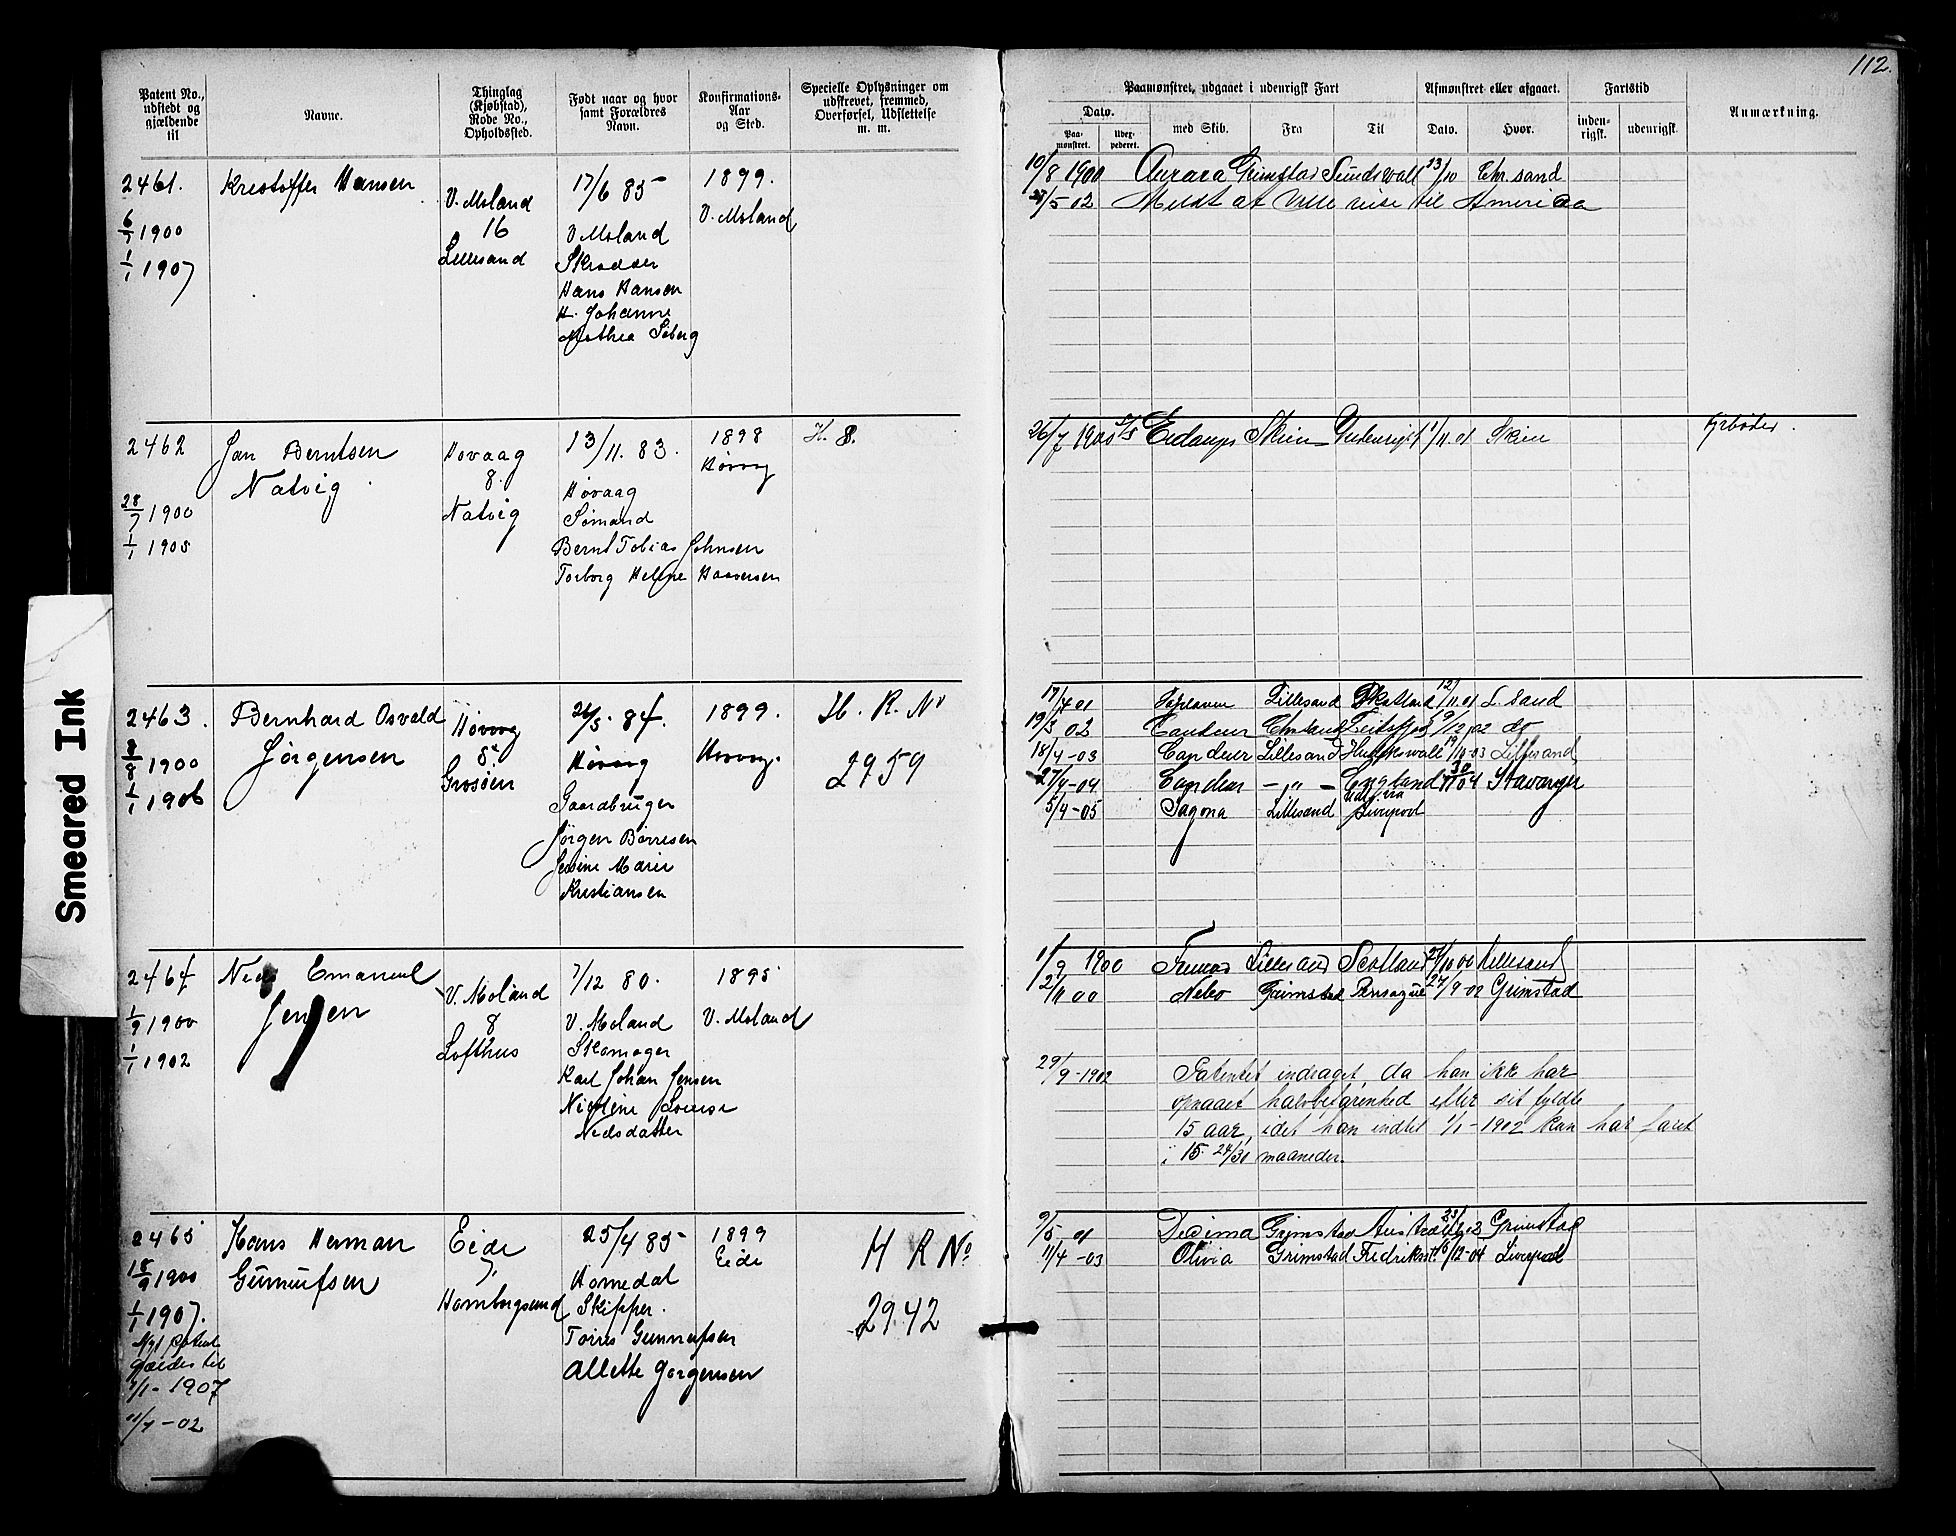 112.
Patent No., udstedt og gjældende til
Navne.
Thinglag (Kjøbstad), Rode No., Opholdssted.
Født naar og hvor samt Forældres Navn.
Konfirmations-Aar og Sted.
Specielle Oplysninger om udskrevet, fremmed, Overførsel, Udslettelse m. m.
Paamønstret, udgaaet i udenrigsk Fart
Afmønstret eller afgaaet.
Fartstid
Anmærkning.
Dato.
Paa-mønstret.
Udex-pederet.
med Skib.
Fra
Til
Dato.
Hvor.
inden-rigsk.
udenrigsk.
2461.
6/7 1900
1/1 1907
Kristoffer Hansen
V. Moland
16
Lillesand
17/6 85
V. Moland
Skrædder
Hans Hansen
H. Johanne
Mathea Soberg
1899.
V. Moland
10/8 1900 Aurora Grimstad Sundswall 13/10 Chr.sand
27/5 02 Meldt at ville reise til Amerika
2462
28/7 1900
1/1 1905
Jan Berntsen
Natvig
Hovaag
8.
Natvig
13/11. 83.
Høvaag
Sømand
Bernt Tobias Johnsen
Torborg Helene Haaversen
1898
Høvaag
H. 8.
26/7 1900 D/S Eidanger Skien Udenrigsk 1/11 01 Skien
Fyrbøder.
2463.
8/8 1900
1/1 1906
Bernhard Osvald
Jørgensen
Høvaag
8.
Grosøen
26/5. 84.
Høvaag
Gaardbruger
Jørgen Børresen
Jensine Marie
Kristiansen
1899.
Hovaag.
H. R. No
2959
17/4 01 Lillesand Skotland 12/11 01 L.sand
19/3 02 Candeur 9/12 02 do
18/4-03 Candeur Lillesand Hudikswall 19/10-03 Lillesand
27/4-04 Candeur - „ - England 30/11 04 Stavanger
5/4-05 Sagona Lillesand Liverpool
2464.
1/9 1900
1/1 1902
Niels Emanuel
Jensen
V. Moland
8
Lofthus
7/12 80.
V. Moland
Skomager
Karl Johan Jensen
Nicoline Lovise
Nielsdatter
1895
V. Moland
1/9 1900 Lillesand Scotland 24/10 00 Lillesand
12/11 00 Nebo Grimstad 27/9-02 Grimstad
29/9-1902 Patentet inddraget, da han ikke har
opnaaet halvbefarenhed efter sit fyldte
15 aar, idet han indtil 1/1-1902 kun har faret
i 15 24/30 maaneder.
2465
18/9 1900
1/1 1907.
Nyt patent
gældes til
1/1-1907
11/7-02
Hans Herman
Gunnufsen
Eide
7.
Homborgsund
25/4 85
Homedal
Skipper.
Torris Gunnufsen
Allette Jørgensen
1899
Eide
H R No.
2942
9/5 01 Desima Grimstad Grimstad
11/4-03 Olivia Grimstad Fredrikst. 16/12-04 Liverpool
Smeared Ink